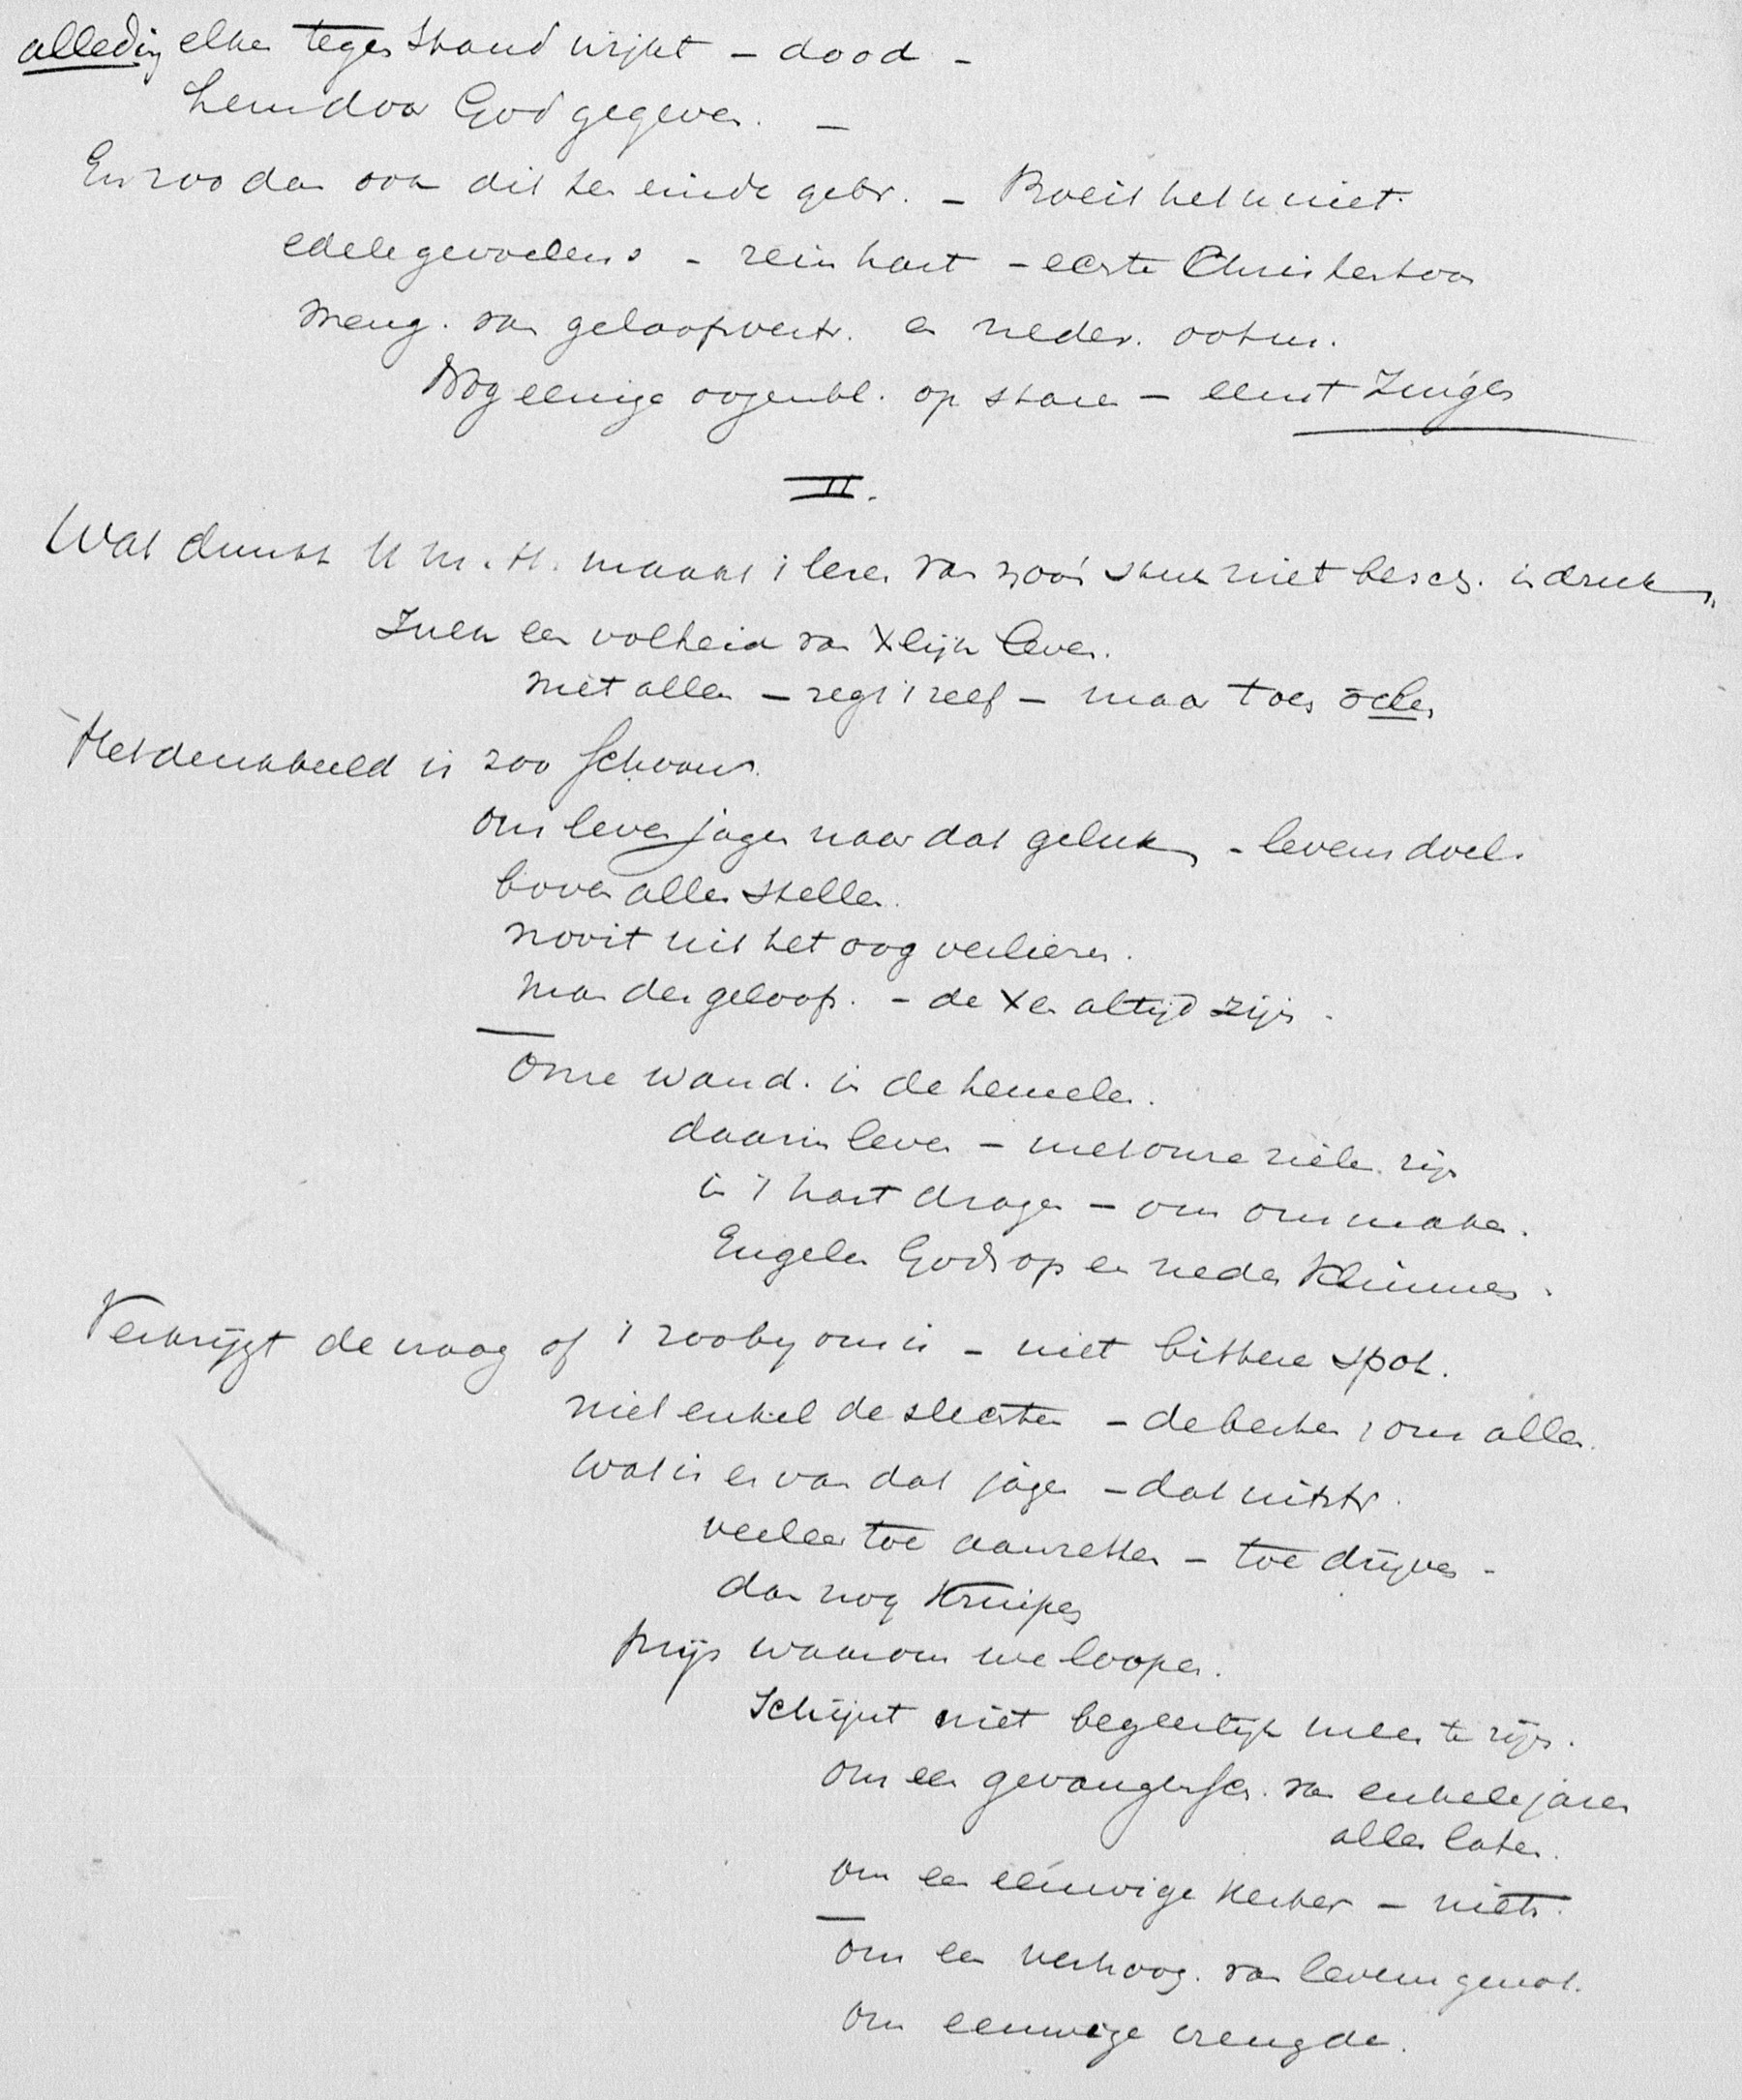 alleding elken tegenstand wijkt – dood –
hem door God gegeven. –
En zoo dan ook dit ten einde gebr. – Boeit het u niet.
edele gevoelens – rein hart – echte Christentoon
meng. van geloofsvertr. en neder. ootm.
Nog eenige oogenbl. op staren – eerst Zingen
II.
Wat dunkt U m. H. maakt 't lezen van zoo'n stuk niet besch. indruk,
Zulk een volheid van Xlijk leven.
niet alles – regt 't zelf – maar toch
Het denkbeeld is zoo schoon.
ons leven jagen naar dat geluk, – levensdoel.
boven alles stellen.
nooit uit het oog verliezen.
man des geloofs. – de Xen altijd zijn.
Onze wand. in de hemelen.
daarin leven – met onze ziele zijn
in 't hart dragen – om ons maken.
Engelen Gods op en neder klimmen.
Verkrijgt de vraag of 't zoo by ons is – niet bittere spot.
niet enkel de slechten – de besten, ons allen.
Wat is er van dat jagen – dat uitstr.
veeleer toe aanzetten – toe drijven –
dan nog kruipen
prijs waarom we loopen.
Schijnt niet begeerlijk meer te zijn.
om een gevangensch. van enkele jaren
alles laten.
om een eeuwige kerker – niets.
om een verhoog. van levensgenot.
om eeuwige vreugde.